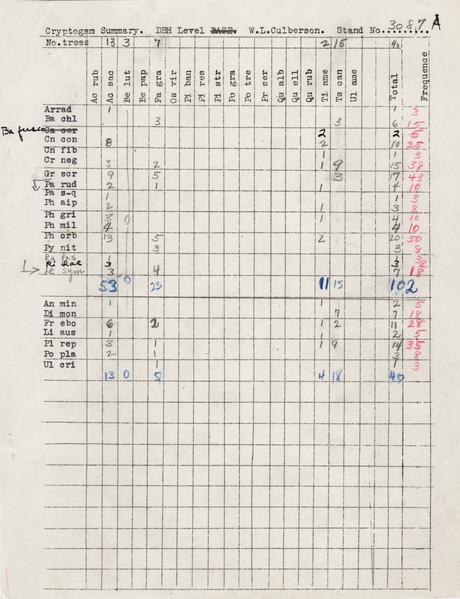 Cryptogam Summary. DBH Level BASE. W.L.Culberson. Stand No. 3087 A
No.trees 13 3 7 2 15 40
Ac rub Ac sac Be lut Be pap Fa gra Os vir Pi ban Pi res Pi str Po gra Po tre Pr ser Qu alb Qu ell Qu rub Ti ame Ts can Ul ame Total Frequency
Arrad 1 1 3
Ba chl 3 3 6 15
Ba fusca 2 2 5
Cn con 8 2 10 25
Cn fib 1 1 3
Cr neg 3 2 1 9 15 38
Gr scr 9 5 3 17 43
Pa rud 2 1 1 4 10
Pa s-q 1 1 3
Ph aip 2 1 3 8
Ph gri 3 1 4 10
Ph mil 4 4 10
Ph orb 13 5 2 20 50
Py nit 3 3 8
Le sym 3 4 7 18
53 0 23 11 15 102
An min 1 1 2 5
Di mon 7 7 18
Fr ebo 6 2 1 2 11 28
Li aus 1 1 2 5
Pl rep 3 1 1 9 14 35
Po pla 2 1 3 8
Ul ori 1 1 3
13 0 5 4 18 40